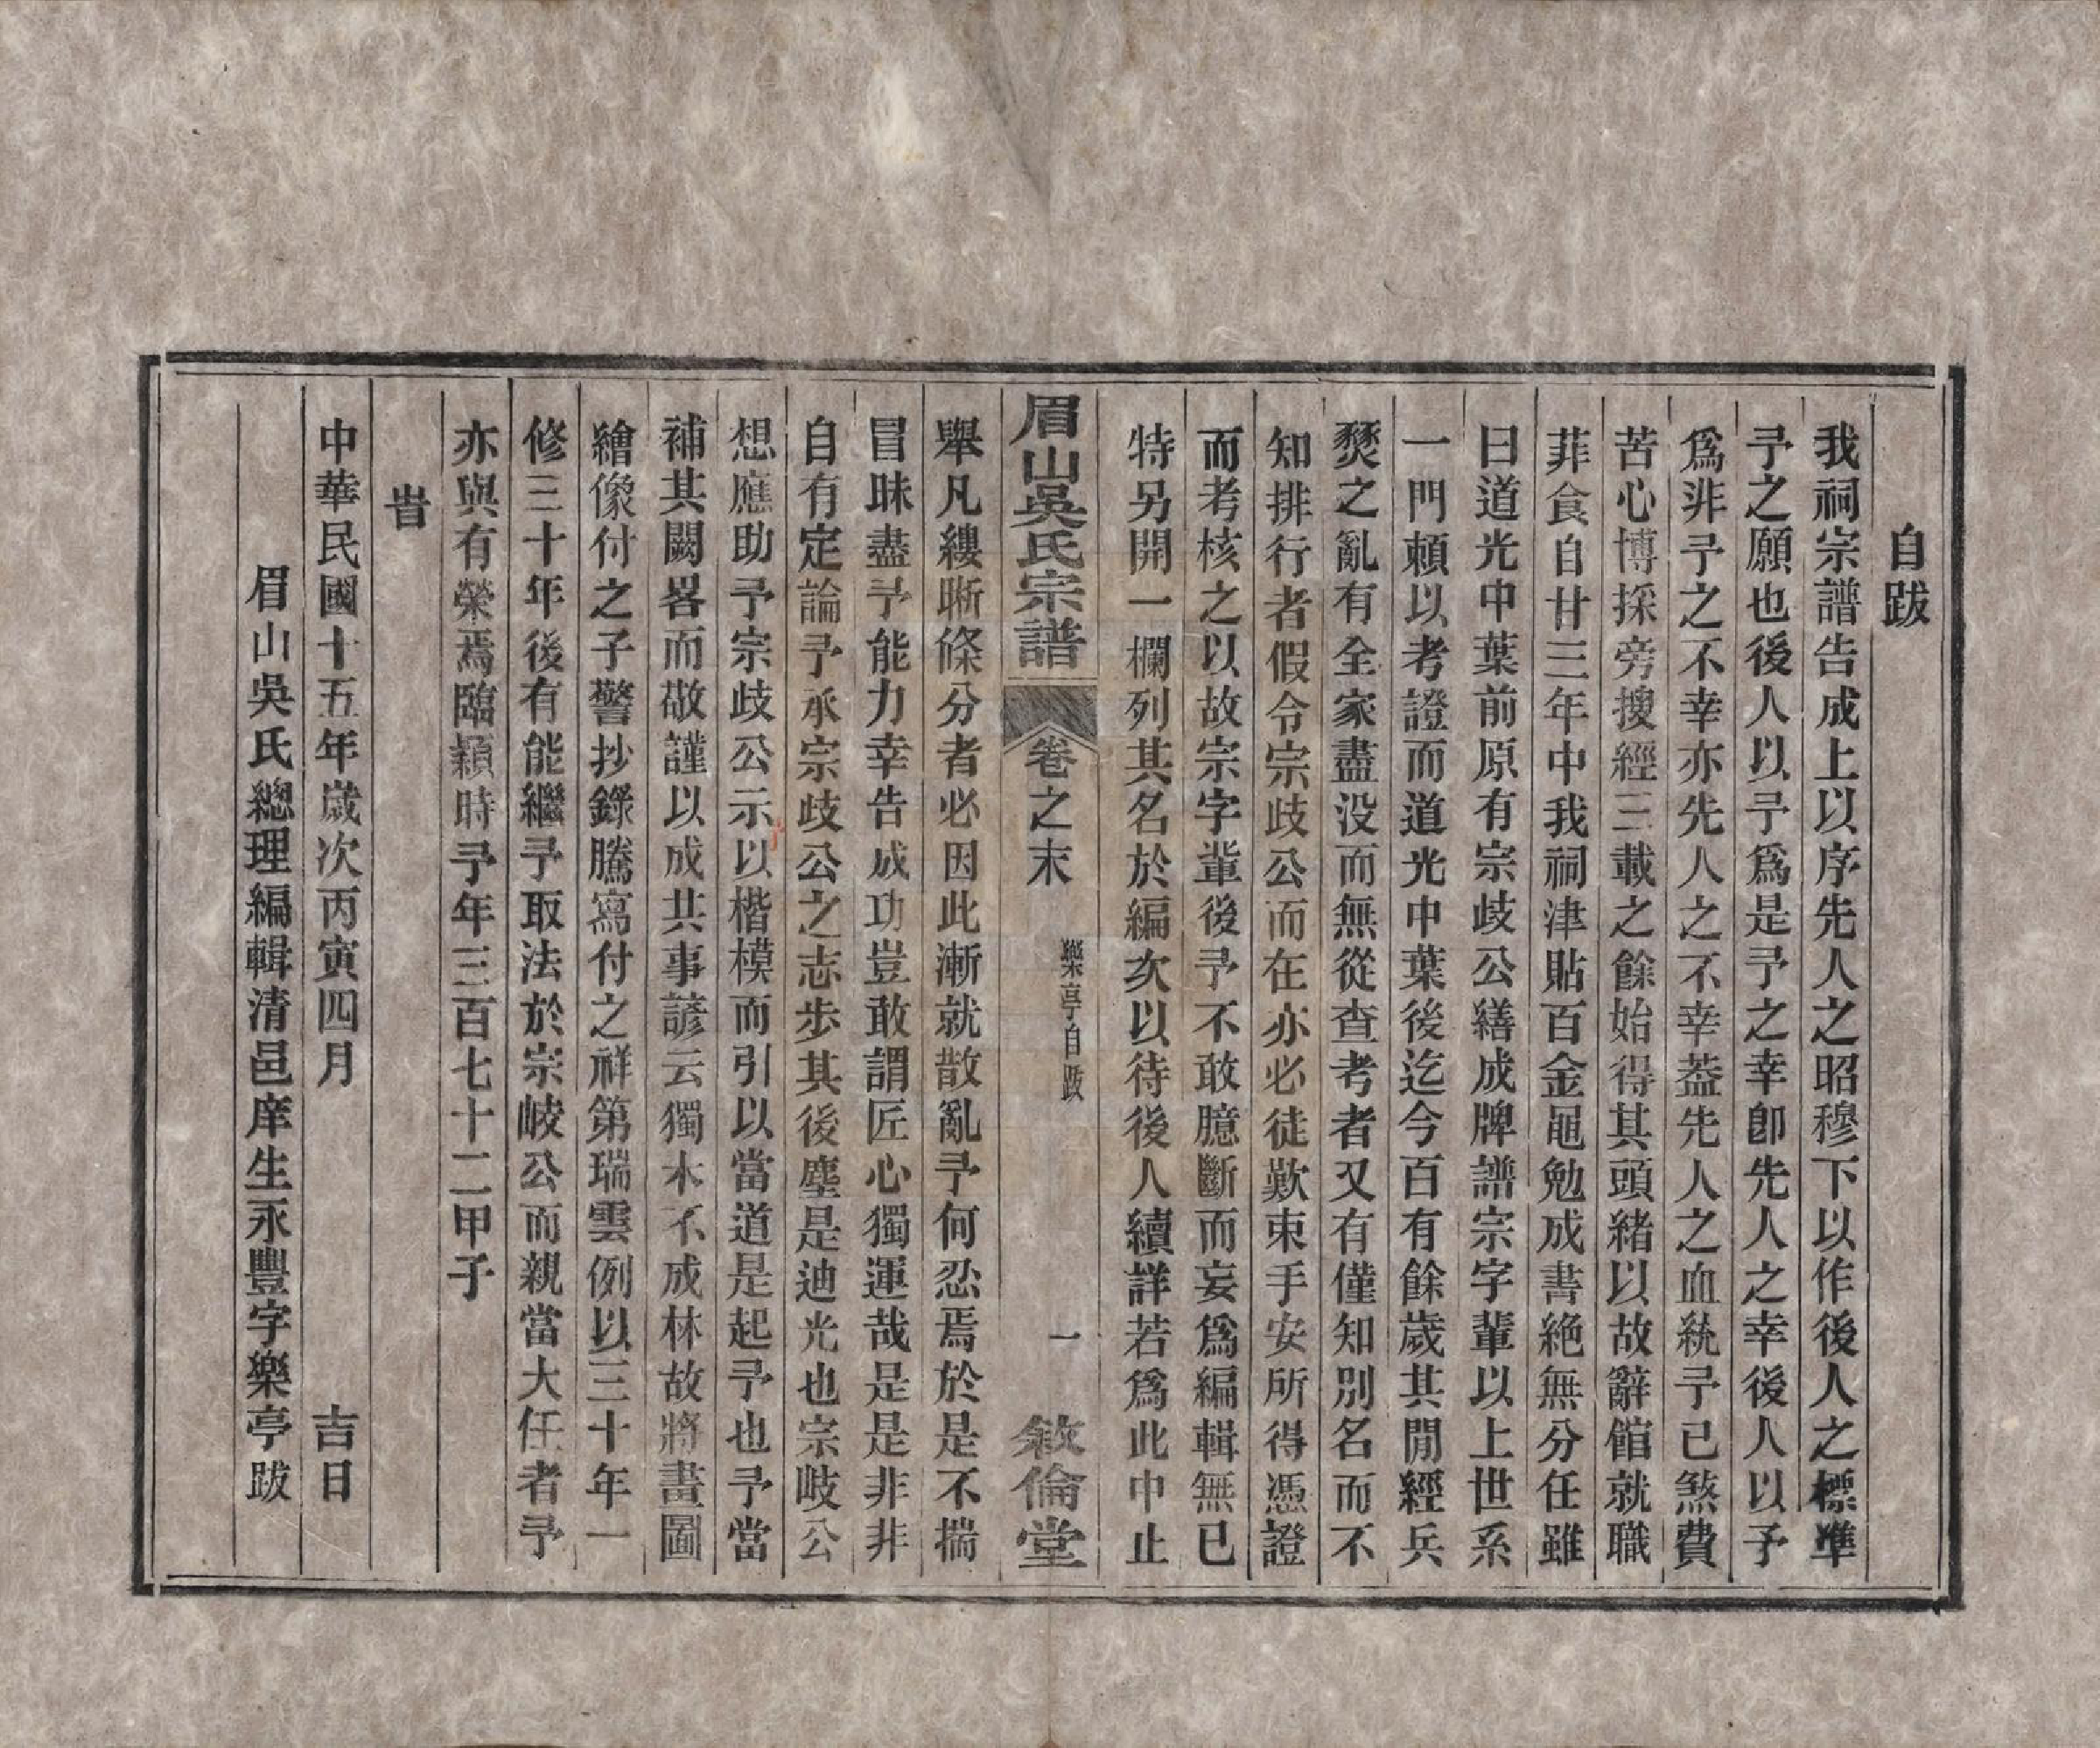 自跋
我祠宗譜告成上以序先人之昭穆下以作後人之標準
予之願也後人以予爲是予之幸卽先人之幸後人以予
爲非予之不幸亦先人之不幸葢先人之血統予已煞費
苦心博採旁搜經三載之餘始得其頭緒以故辭館就職
菲食自甘三年中我祠津貼百金黽勉成書絶無分任雖
曰道光中葉前原有宗歧公繕成牌譜宗字輩以上世系
一門頼以考證而道光中葉後迄今百有餘歲其閒經兵
燹之亂有全家盡没而無從查考者又有僅知別名而不
知排行者假令宗歧公而在亦必徒歎束手安所得憑證
而考核之以故宗字輩後予不敢臆斷而妄爲編輯無已
特另開一欄列其名於編次以待後人續詳若爲此中止
眉山吳氏宗譜 卷之末 樂亭自跋 一 敘倫堂
舉凡縷晰條分者必因此漸就散亂予何忍焉於是不揣
冒昧盡予能力幸告成功豈敢謂匠心獨運哉是是非非
自有定論予承宗歧公之志步其後塵是迪光也宗岐公
想應助予宗歧公示以楷模而引以當道是起予也予當
補其闕畧而敬謹以成其事諺云獨木不成林故將畫圖
繪像付之子警抄錄騰寫付之祥第瑞雲例以三十年一
修三十年後有能繼予取法於宗岐公而親當大任者予
亦與有榮焉臨穎時予年三百七十二甲子
旹
中華民國十五年歲次丙寅四月 吉日
眉山吳氏總理編輯清邑庠生永豐字樂亭跋